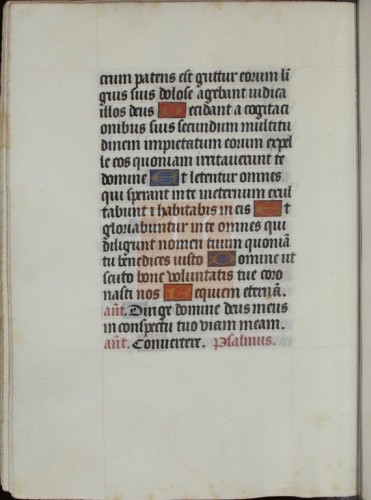 crum patens est guttur eorum lī
guis suis dolose agebant iudica
illos deus Decidant a cogitaci
onibus suis secundum multitu
dinem impietatum eorum expel
le eos quoniam irritaverunt te
domine Et letentur omnes
qui sperant in te ineternum exul
tabunt ⁊ habitabis in eis Et
gloriabuntur in te omnes qui
diligunt nomen tuum quoniā
tu benedices iusto Domine ut
scuto bone voluntatis tue coro
nasti nos Requiem eternā.
ant̄. Dirige domine deus meus
in conspectu tuo viam meam.
ant̄. Convertere. Psalmus.